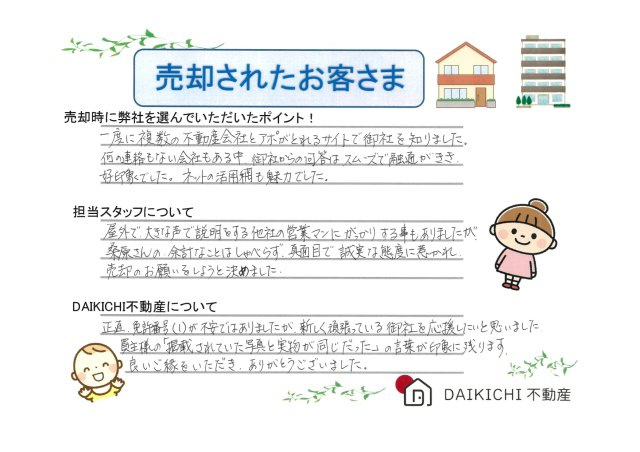 売却されたお客さま
売却時に弊社を選んでいただいたポイント！
一度に複数の不動産会社とアポがとれるサイトで御社を知りました。
何の連絡もない会社もある中、御社からの回答はスムーズで融通がきき
好印象でした。ネットの活用網も魅力でした。
担当スタッフについて
屋外で大きな声で説明をする他社の営業マンにがっかりする事もありましたが
桑原さんの余計なことはしゃべらず、真面目で誠実な態度に惹かれ、
売却のお願いをしようと決めました。
DAIKICHI不動産について
正直、免許番号(1)が不安ではありましたが、新しく頑張っている御社を応援したいと思いました
買主様の「掲載されていた写真と実物が同じだった」の言葉が印象に残ります。
良いご縁をいただき、ありがとうございました。
DAIKICHI 不動産